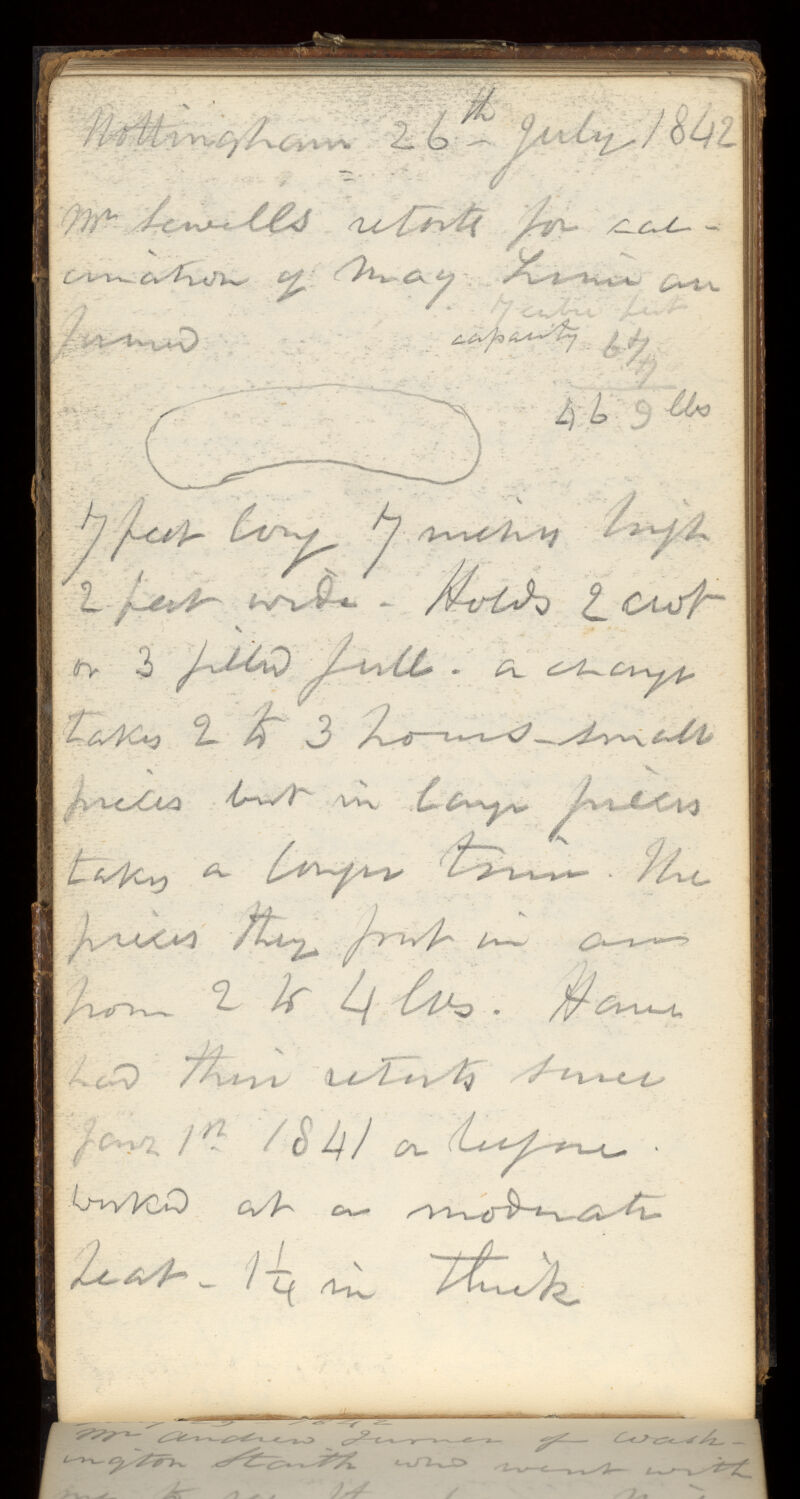 Nottingham 26th July 1842
Mr Sewells retorts for cal-
cination of Mag Lime are
formed
7 cubic feet
capacity 67
7
469 lbs
7 feet long 7 inches high
2 feet wide - Holds 2 cwt
or 3 filled full. a charge
takes 2 to 3 hours - small
pieces but in large pieces
takes a longer time. The
pieces they put in are
from 2 to 4 lbs. Have
had their retorts since
Jany 1st 1841 or before.
worked at a moderate
heat - 1¼ in thick
1842
Mr Andrew Turner of Wash-
ington Staith who went with
me to